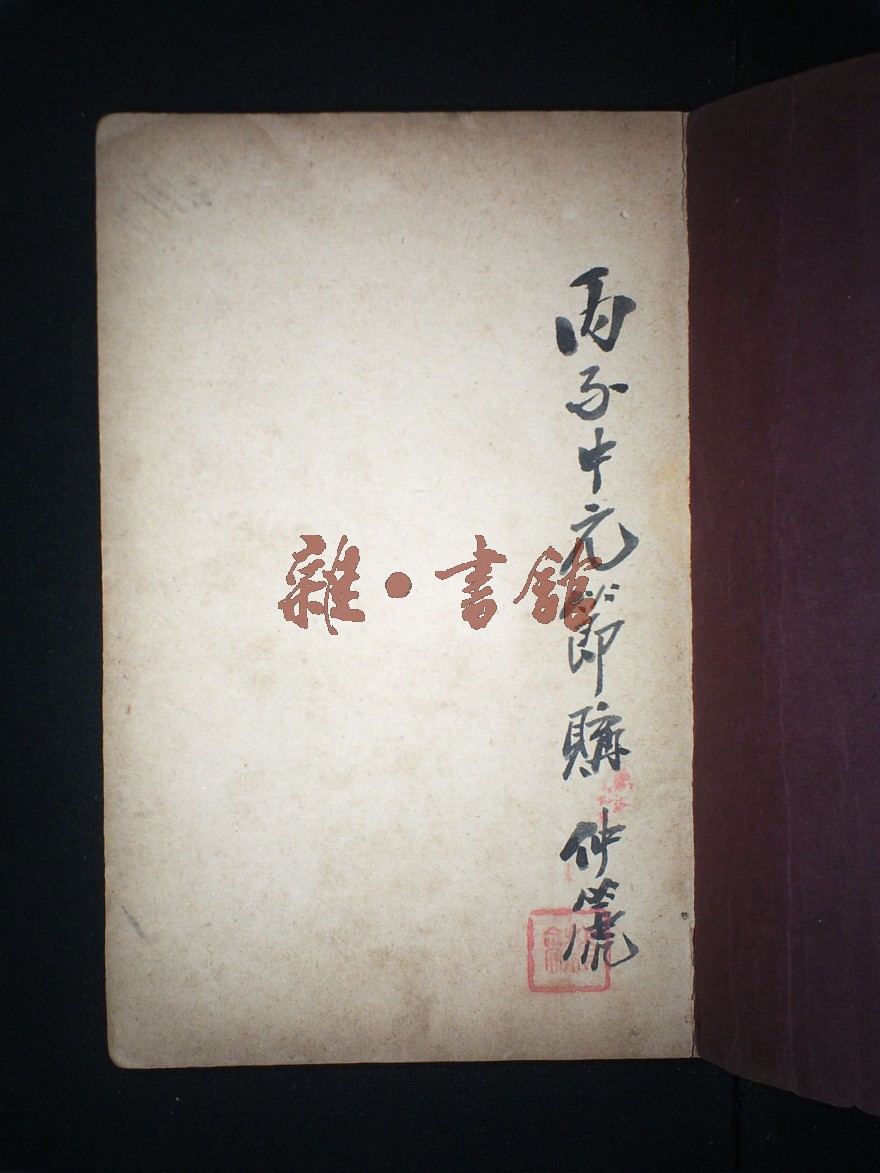 丙子中元節購 仲篪
雜·書館